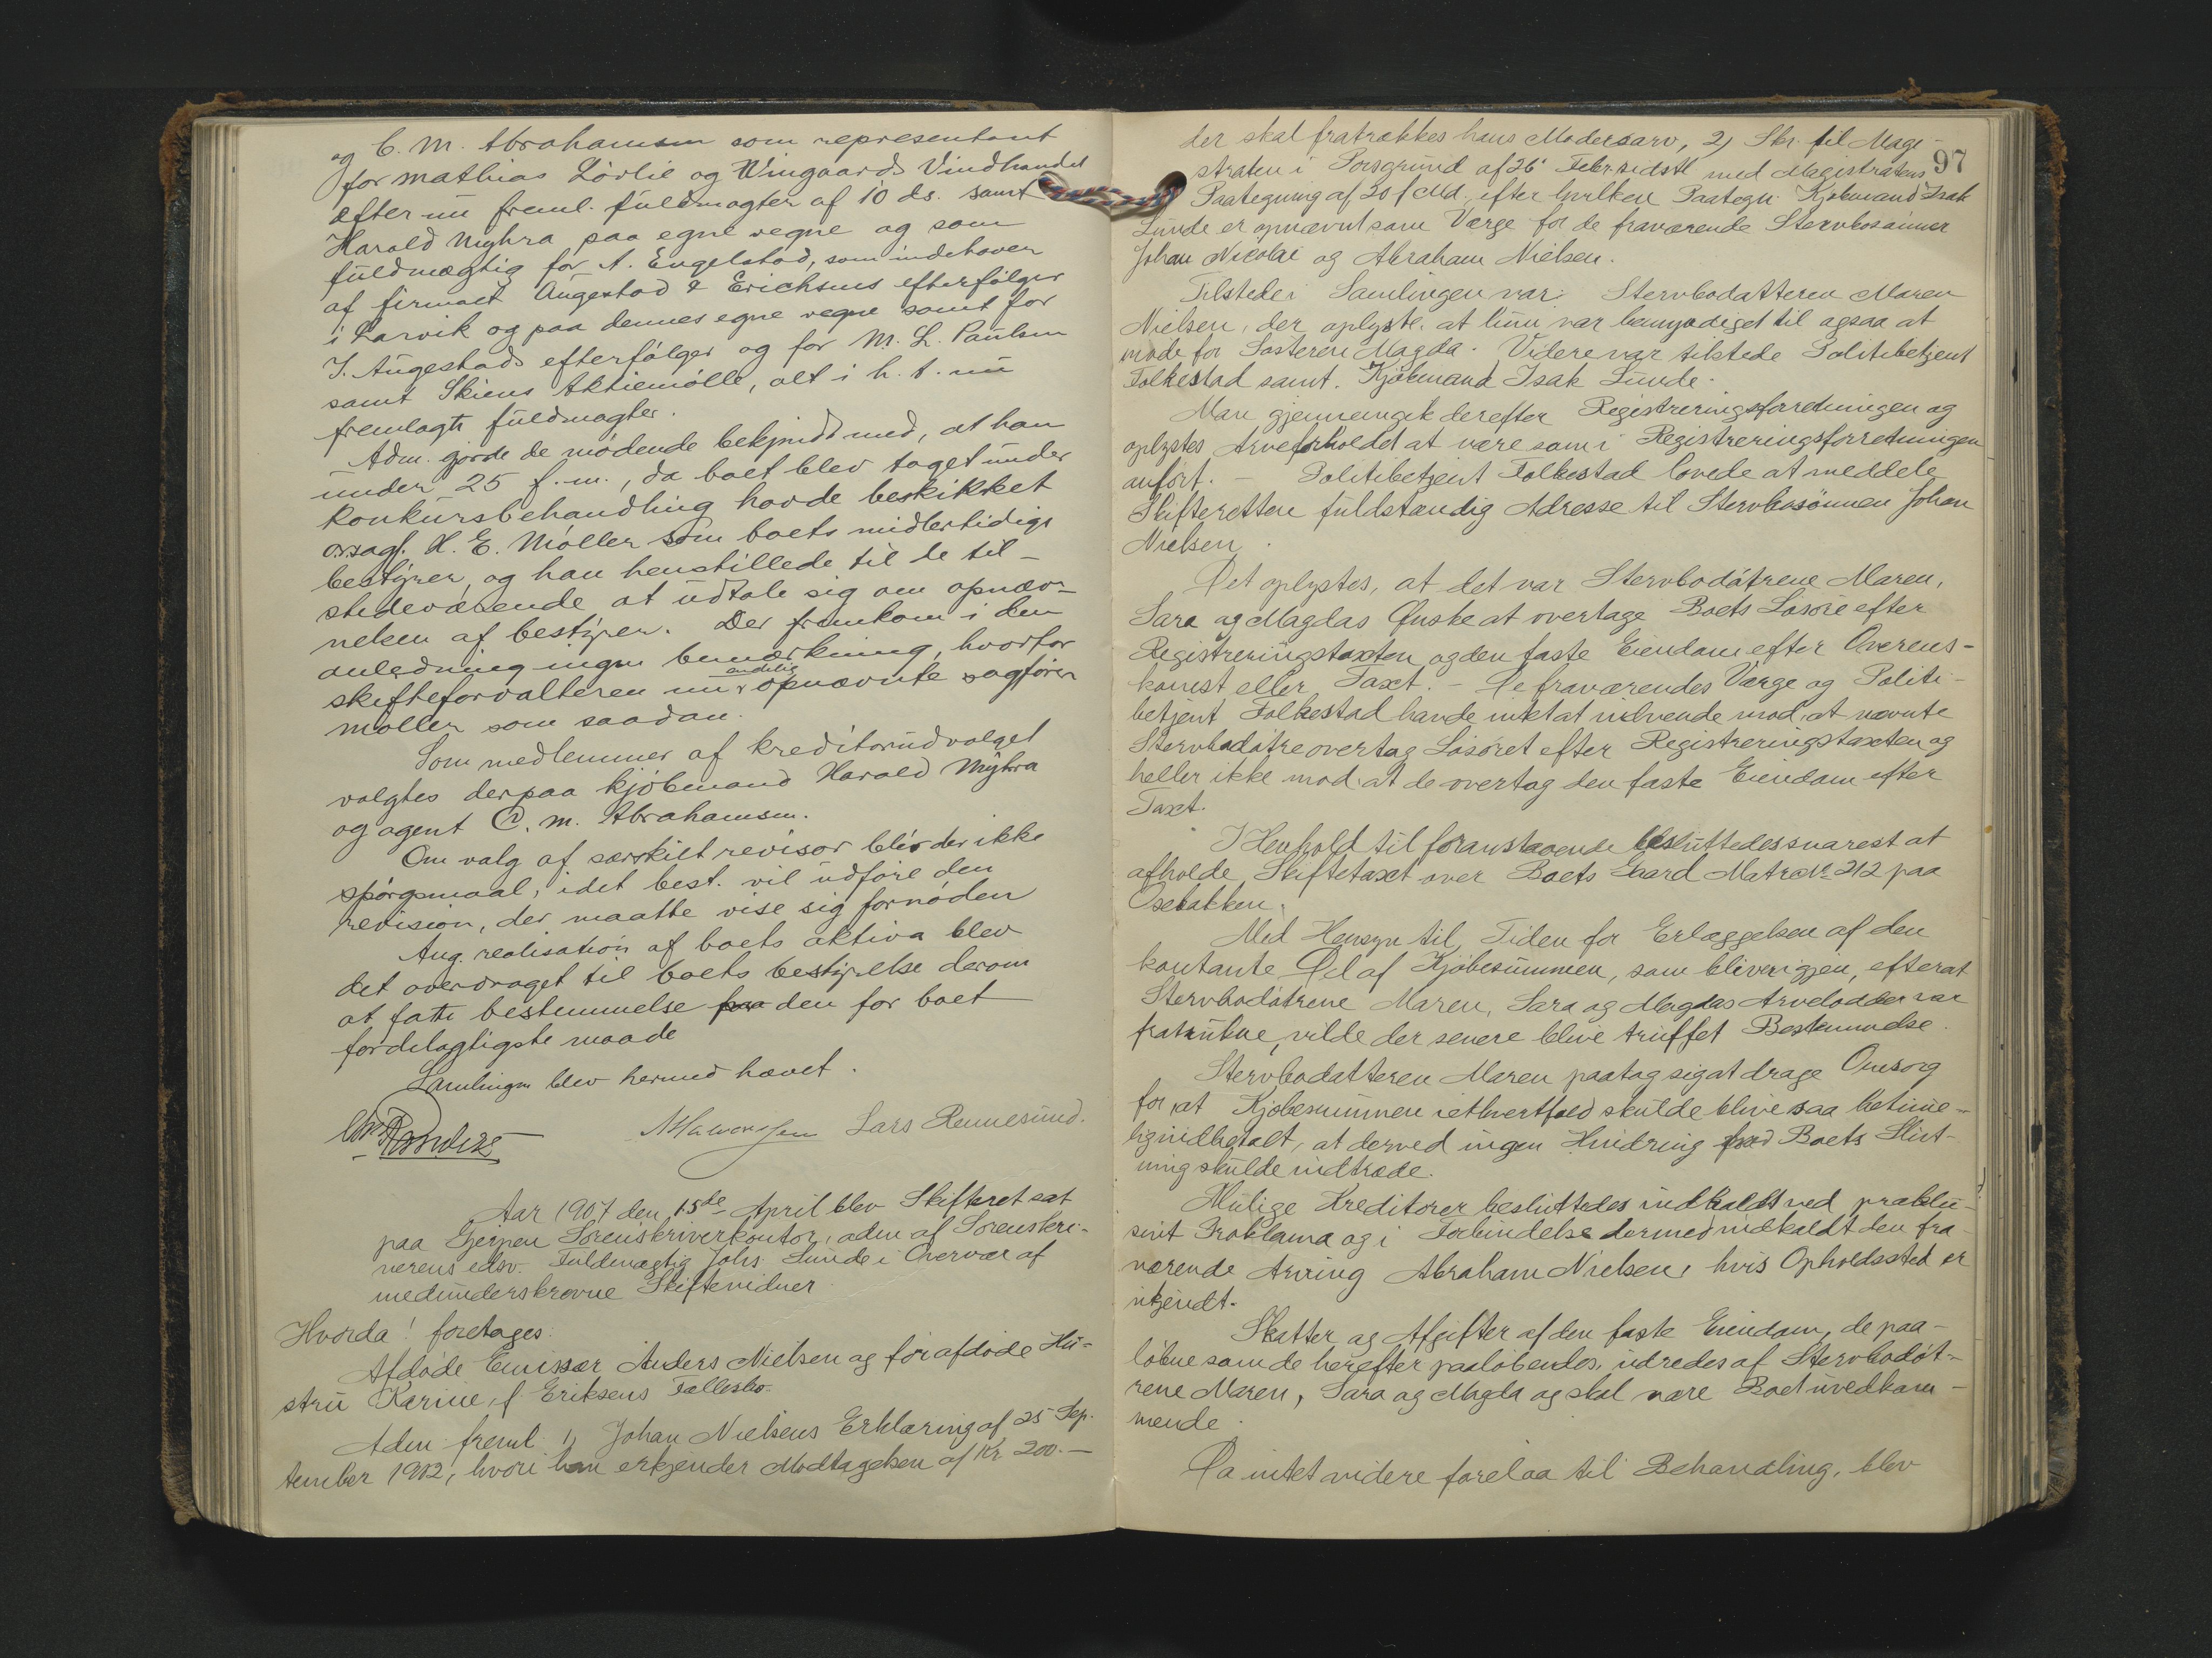 og C. M. Abrahamsen som representant
for Mathias Lövlie og Wingaards Vindhandel
efter nu freml. fuldmagter af 10 ds. samt
Harald Myhra paa egne vegne og som
fuldmægtig for A. Engelstad, som indehaver
af firmaet Augestad & Erichsens efterfölger
i Larvik og paa dennes egne vegne samt for
J. Augestads efterfölger og for M. L. Paulsen
samt Skiens Aktiemölle, alt i h. t. nu
fremlagte fuldmagter.
Adm. gjorde de mödende bekjendt med, at han
under 25 f. m., da boet blev taget under
konkursbehandling havde beskikket
orsagf. H. E. Möller som boets midlertidige
bestyrer, og han henstillede til de til-
stedeværende at udtale sig om opnæv-
nelsen af bestyrer. Der fremkom i den
anledning ingen bemærkning, hvorfor
skifteforvalteren nu endelig opnævnte sagförer
Möller som saadan.
Som medlemmer af kreditorudvalget
valgtes derpaa kjöbmand Harald Myhra
og agent C. M. Abrahamsen.
Om valg af særskilt revisor blev der ikke
spörgsmaal, idet best. vil udföre den
revision, der maatte vise sig fornöden
Ang. realisation af boets aktiva blev
det overdraget til boets bestyrelse derom
at fatte bestemmelse paa den for boet
fordelagtigste maade
Samlingen blev hermed hævet.
Lars Rennesund.
Aar 1907 den 15de April blev Skifteret sat
paa Gjerpen Sorenskriverkontor, adm af Sorenskri-
verens edsv. Fuldmægtig Johs. Lunde i Overvær af
medunderskrevne Skiftevidner
Hvorda! foretages:
Afdöde Emissær Anders Nielsen og förafdöde Hu-
stru Karine f. Eriksens Fællesbo.
Adm. freml. 1, Johan Nielsens Erklæring af 25 Sep-
tember 1902, hvori han erkjender Modtagelsen af Kr 200.-
97
der skal fratrækkes hans Mödrearv, 2) Skr. til Magi-
straten i Porsgrund af 26' Febr. sidstl. med Magistratens
Paategning af 20 f Md, efter hvilken Paategn. Kjöbmand Isak
Lunde er opnævnt som Værge for de fraværende Stervbosönner
Johan Nicolai og Abraham Nielsen.
Tilstede i Samlingen var: Stervbodatteren Maren
Nielsen, der oplyste, at hun var bemyndiget til ogsaa at
möde for Sösteren Magda. Videre var tilstede Politibetjent
Folkestad samt. Kjöbmand Isak Lunde.
Man gjennemgik derefter Registreringsforretningen og
oplystes Arveforholdet at være som i Registreringsforretningen
anfört. - Politibetjent Folkestad lovede at meddele
Skifteretten fuldstændig Adresse til Stervbosönnen Johan
Nielsen.
Det oplystes, at det var Stervbodötrene Maren,
Sara og Magdas Ønske at overtage Boets Lösöre efter
Registreringstaxten og den faste Eiendom efter Overens-
komst eller Taxt. - De fraværendes Værge og Politi-
betjent Folkestad havde intet at indvende mod, at nævnte
Stervbodötre overtog Lösöret efter Registreringstaxten og
heller ikke mod at de overtog den faste Eiendom efter
Taxt.
I Henhold til foranstaaende besluttedes snarest at
afholde Skiftetaxt over Boets Gaard Matr No 212 paa
Osebakken.
Med Hensyn til Tiden for Erlæggelsen af den
kontante Del af Kjöbesummen, som bliver igjen, efterat
Stervbodötrene Maren, Sara og Magdas Arvelodder var
fratrukne, vilde der senere blive truffet Bestemmelse.
Stervbodatteren Maren paatog sig at drage Omsorg
for, at Kjöbesummen i ethvertfald skulde blive saa betime-
lig indbetalt, at derved ingen Hindring for Boets Slut-
ning skulde indtræde.
Mulige Kreditorer besluttedes indkaldt ved præklu-
sivt Proklama og i Forbindelse dermed indkaldt den fra-
værende Arving Abraham Nielsen, hvis Opholdssted er
ukjendt.
Skatter og Afgifter af den faste Eiendom, de paa-
löbne som de herefter paalöbendes, udredes af Stervbodöt-
rene Maren, Sara og Magda og skal være Boet uvedkom-
mende.
Da intet videre forelaa til Behandling, blev